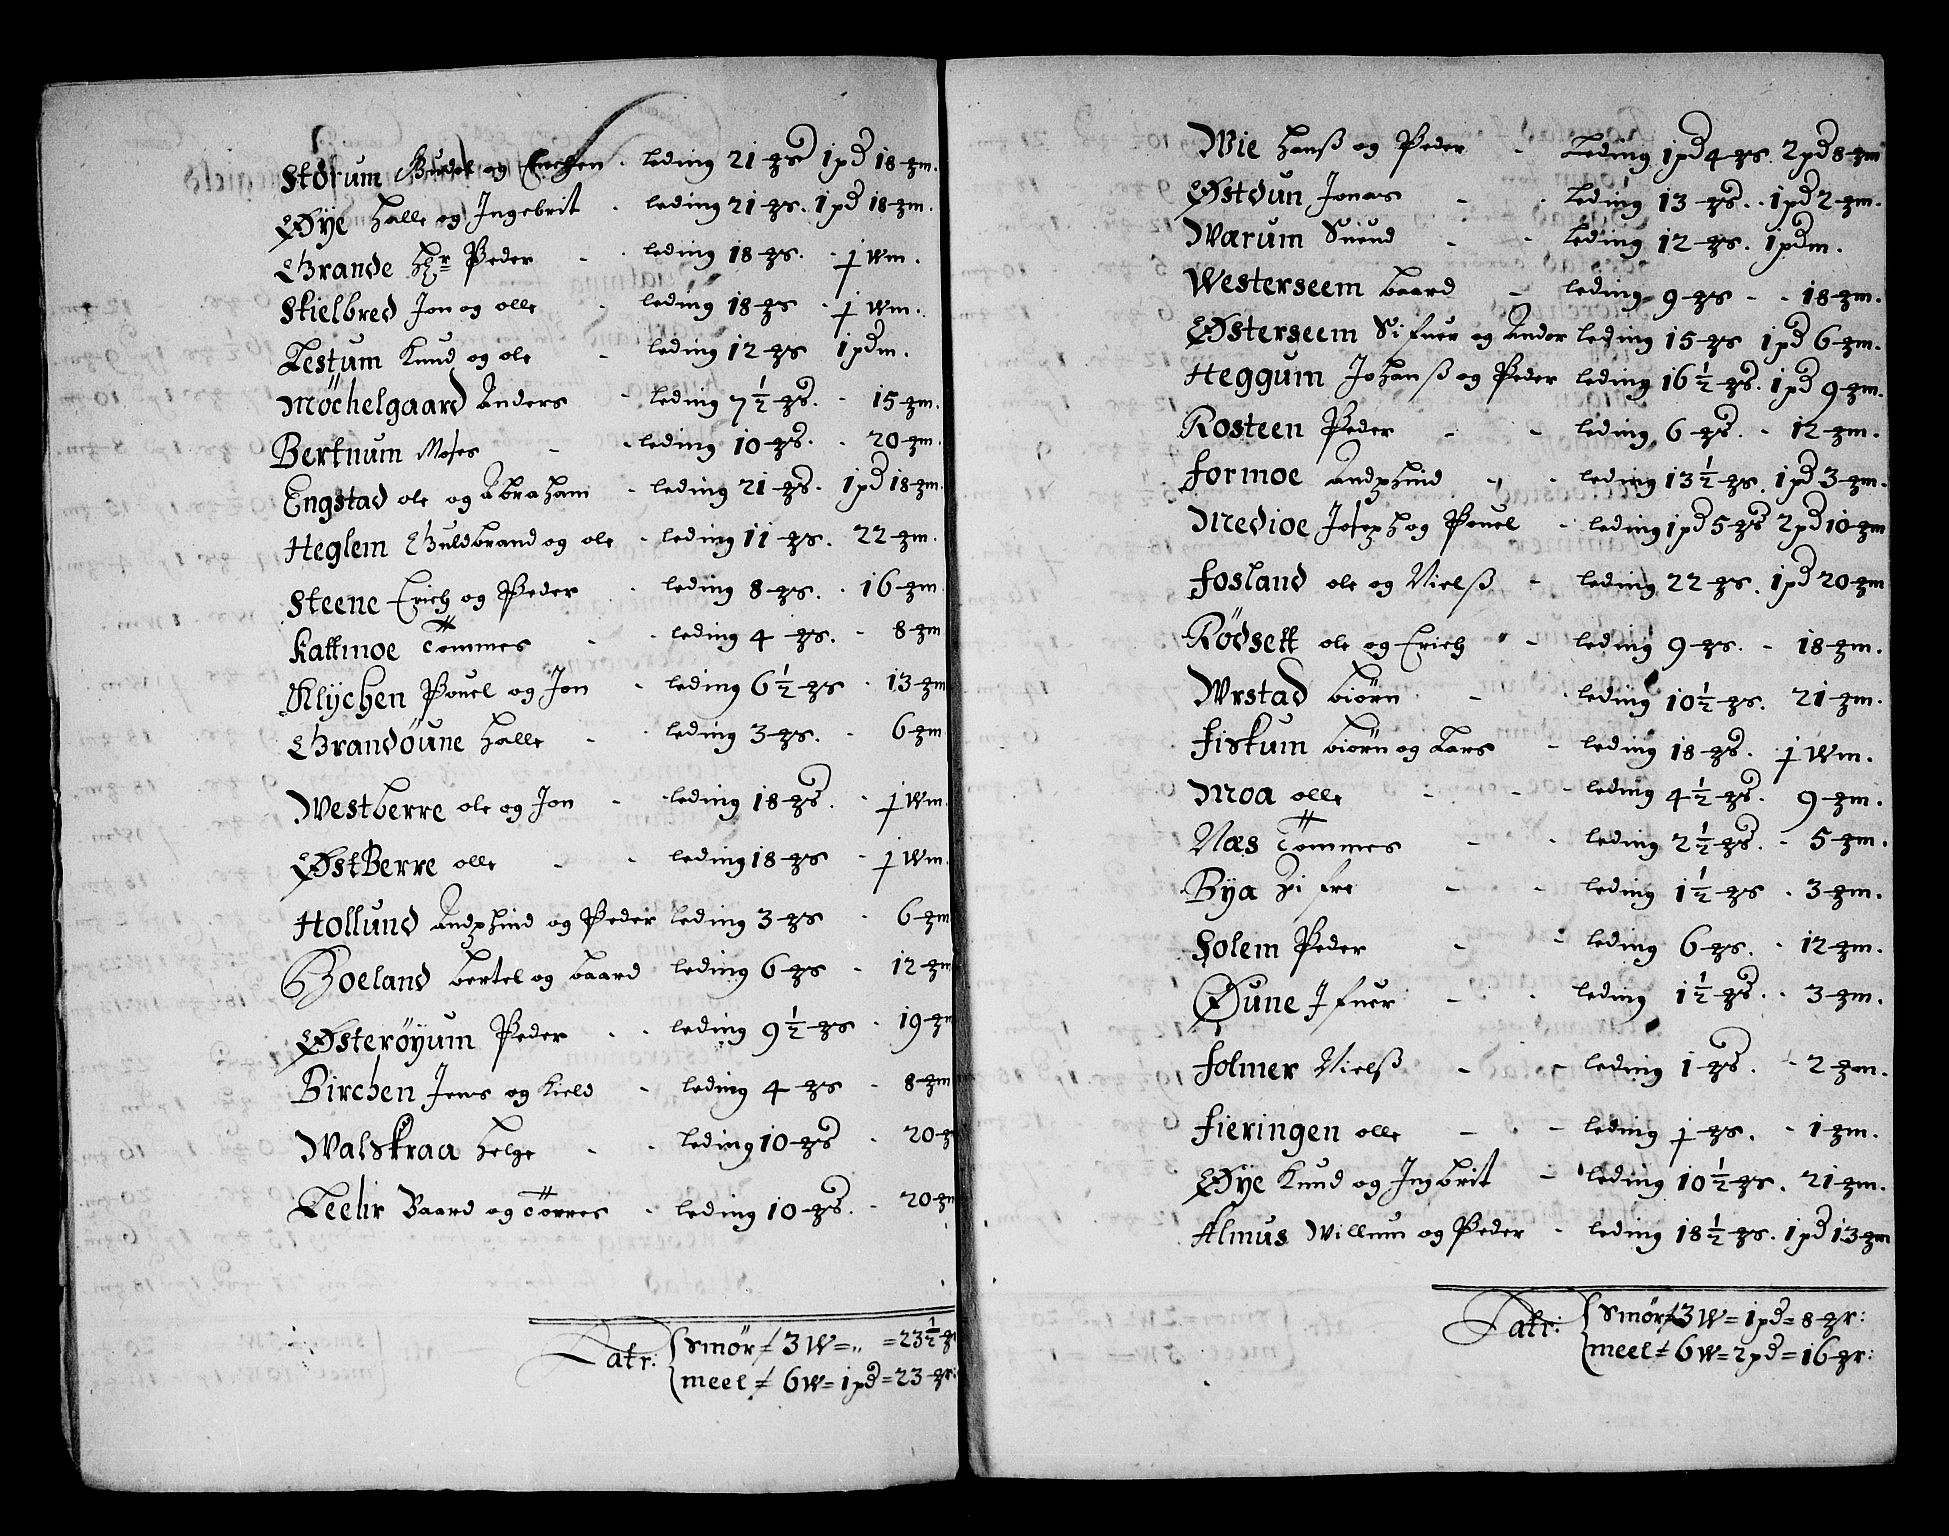 Stdrum Gudol og Erichen leding 21 gs 1 pd 18 gm.
Øÿe Halle og Ingebrit leding 21 gs. 1 pd 18 gm.
Grande Hr Peder leding 18 gs. j Wm.
Skielbred Jon og olle leding 18 gs j Wm.
Lestum Knud og ole leding 12 gs 1 pdm.
Möchelgaard Anders leding 7½ gs. 15 gm.
Bertnum Moses leding 10 gs. 20 gm.
Engstad ole og Abraham leding 21 gs. 1 pd 18 gm.
Heglem Guldbrand og ole leding 11 gs. 22 gm.
Steene Erich og Peder leding 8 gs. 16 gm.
Kattmoe Tommes leding 4 gs. 8 gm
Klÿchen Pouel og Jon leding 6½ gs 13 gm
Grandöune Halle leding 3 gs. 6 gm
Westberre ole og Jon leding 18 gs. j Wm.
ØstBerre olle leding 18 gs j Wm.
Hollund Andphind og Peder leding 3 gs 6 gm
Boeland bertel og baard leding 6 gs 12 gm
Østeröÿum Peder leding 9½ gs 19 gm
Birchen Jens og Kield leding 4 gs 8 gm
Walskraa Helge leding 10 gs 20 g
Leehr Baard og Torres leding 10 gs. 20 gm
Latr: Smör 3 W = „ = 23½ gr
meel 6 W = 1 pd = 23 gr:
Wie Hanß og Peder Leding 1 pd 4 gs. 2 pd 8 gm
Østdun Jonas leding 13 gs. 1 pd 2 gm.
Warum Suend leding 12 gs. 1 pdm.
Westerseem baard leding 9 gs 18 gm.
Østerseem Sifuer og Andor leding 15 gs 1 pd 6 gm.
Heggum Johanß og Peder leding 16½ gs. 1 pd 9 gm.
Rosteen Peder leding 6 gs. 12 gm.
formoe Andphind leding 13½ gs. 1 pd 3 gm.
Medioe Joseph og Pouel leding 1 pd 5 gs 2 pd 10 gm
fosland ole og Nielß leding 22 gs. 1 pd 20 gm
Rödsett ole og Erich leding 9 gs. 18 gm.
Wrstad biörn leding 10½ gs. 21 gm.
fiskum biörn og Lars leding 18 gs. j Wm.
Moa olle leding 4½ gs. 9 gm.
Næs Tommes leding 2½ gs. 5 gm.
Bÿa leding 1½ gs 3 gm.
Solem Peder leding 6 gs. 12 gm.
Øune Jfuer leding 1½ gs. 3 gm.
folmer Nielß leding 1 gs. 2 gm.
fieringen olle leding j gs. 1 gm.
Øÿe Knud og Ingbrit leding 10½ gs. 21 gm.
Almus Willum og Peder leding 18½ gs. 1 pd 13 gm
Latr: Smör 3 W = 1 pd = 8 gr:
meel 6 W = 2 pd = 16 gr: